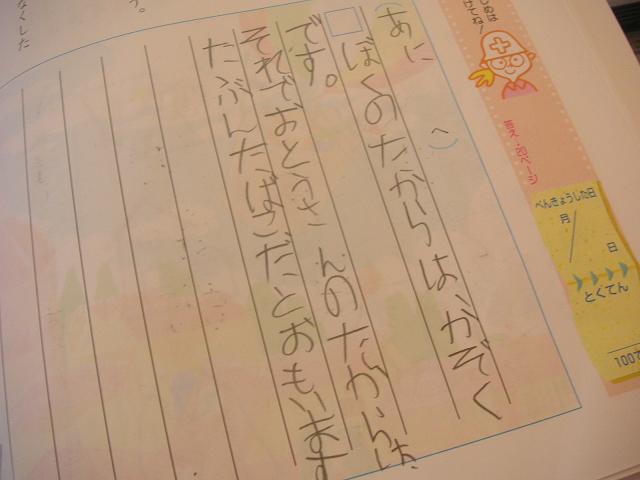 けてね!
答え・20ページ
べんきょうした日
月
日
とくてん
100て
あに
へ
ぼくのたからは、かぞく
です。
それでおとうさんのたからは、
たぶんたばこだとおもいます
なくした
う。